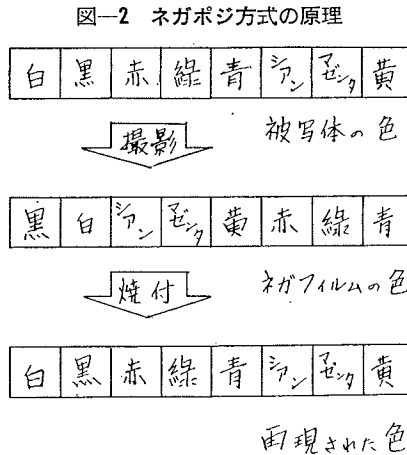 図―2 ネガポジ方式の原理
白 黒 赤 綠 青 シアン マゼンタ 黄
撮影
被写体の色
黒 白 シアン マゼンタ 黄 赤 綠 青
焼付
ネガフィルムの色
白 黒 赤 綠 青 シアン マゼンタ 黄
再現された色